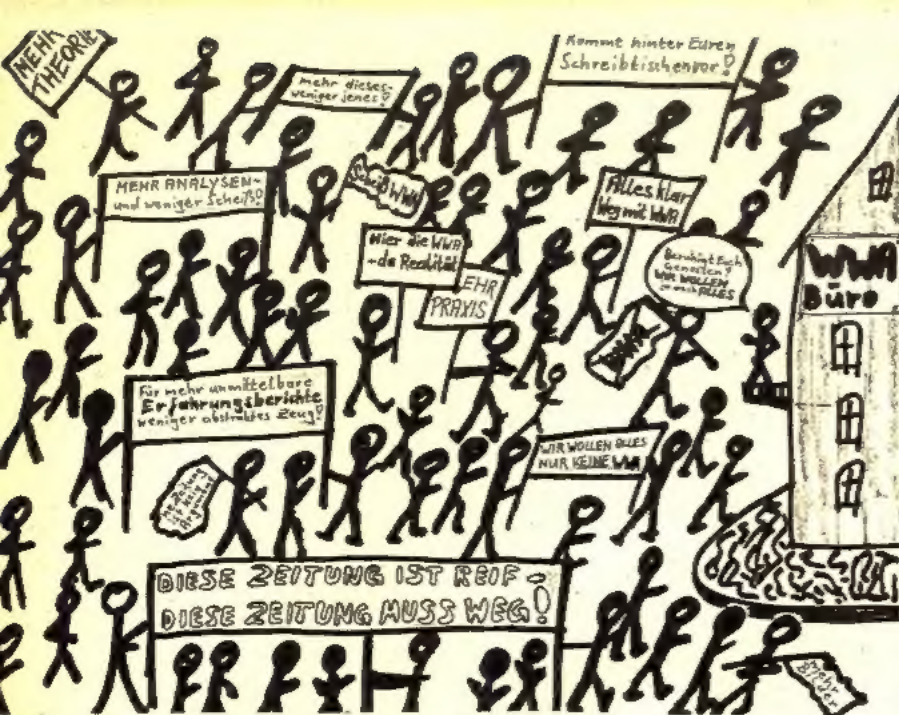 MEHR
THEORIE
mehr dieses-
weniger jenes!
Kommt hinter Euren
Schreibtischenvor!
MEHR ANALYSEN-
und weniger Scheiß!
Scheiß WWA
Alles klar
Weg mit WWA
Hier die WWA
-da Realität
EHR
PRAXIS
Beruhigt Euch
Genossen!
WIR WOLLEN
ALLES
WWA
Büro
WWA
Für mehr unmittelbare
Erfahrungsberichte
weniger abstraktes Zeug!
WIR WOLLEN ALLES
NUR KEINE WWA
ne Zeitung
ist kein
Argument
DIESE ZEITUNG IST REIF-
DIESE ZEITUNG MUSS WEG!
Mehr
Bilder